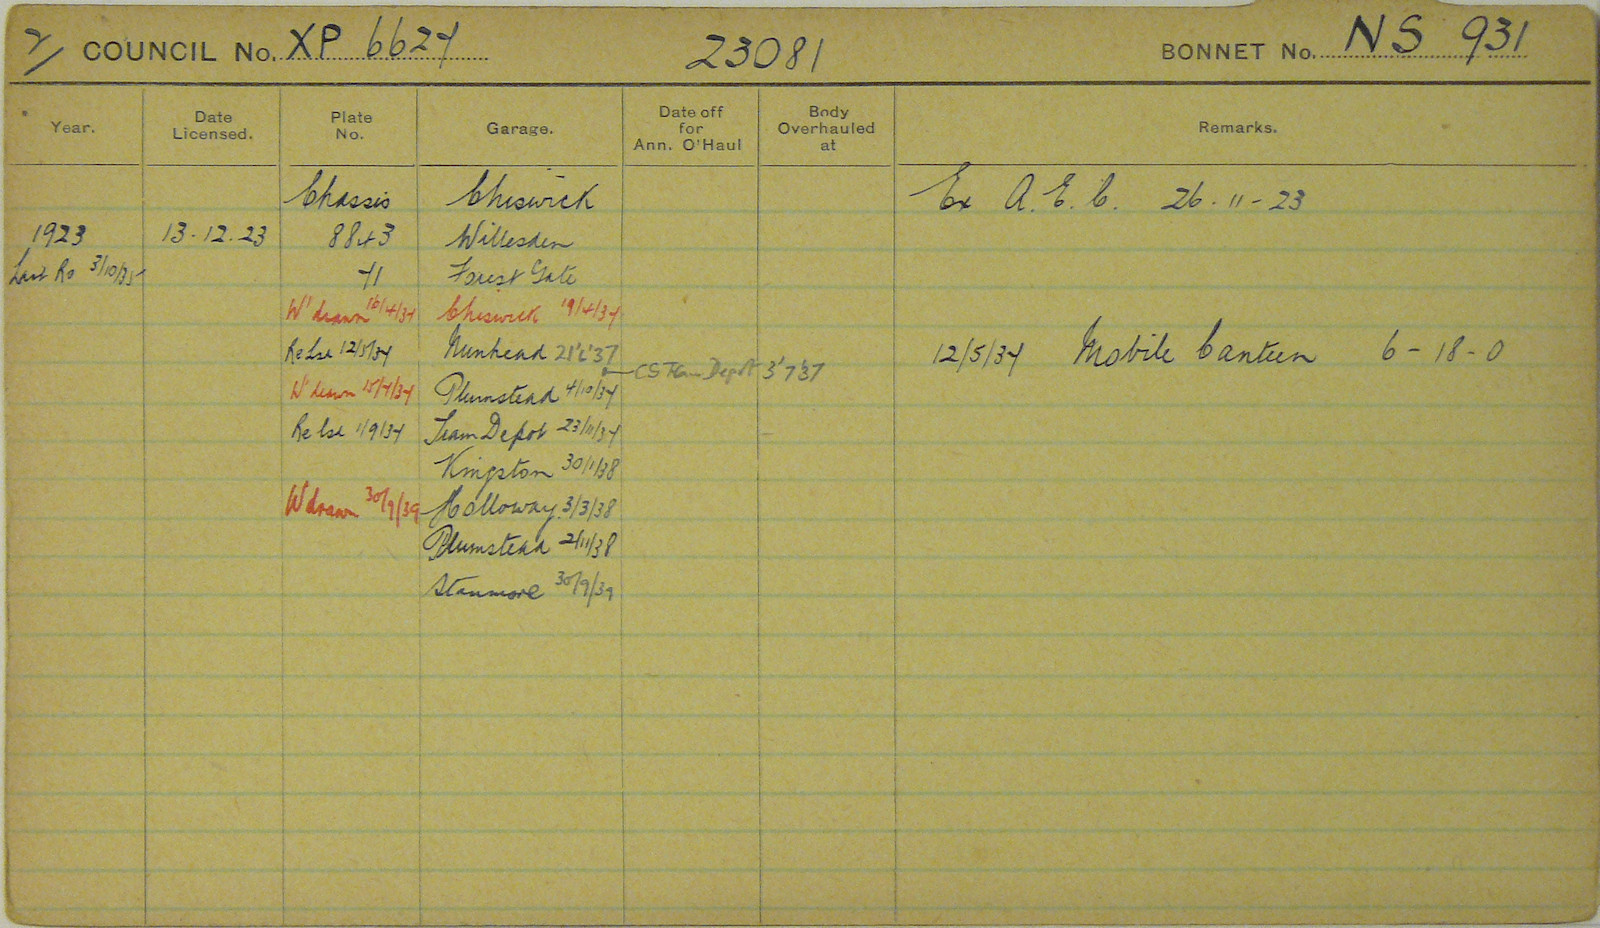 2/ COUNCIL No. XP 6624 23081 BONNET No. NS 931
Year. Date Licensed. Plate No. Garage. Date off for Ann. O'Haul Body Overhauled at Remarks.
Chassis Chiswick Ex A.E.C. 26-11-23
1923 13.12.23 8843 Willesden
Last Ro 3/10/35 41 Forest Gate
W'drawn 16/4/34 Chiswick 19/4/34
Relse 12/5/34 Nunhead 21'6'37 12/5/34 Mobile Canteen 6-18-0
CS Tram Depot 3'7'37
W'drawn 15/4/34 Plumstead 4/10/34
Relse 1/9/34 Team Depot 23/11/34
Kingston 30/1/38
W'drawn 30/9/39 Holloway 3/3/38
Plumstead 2/11/38
Stanmore 30/9/39